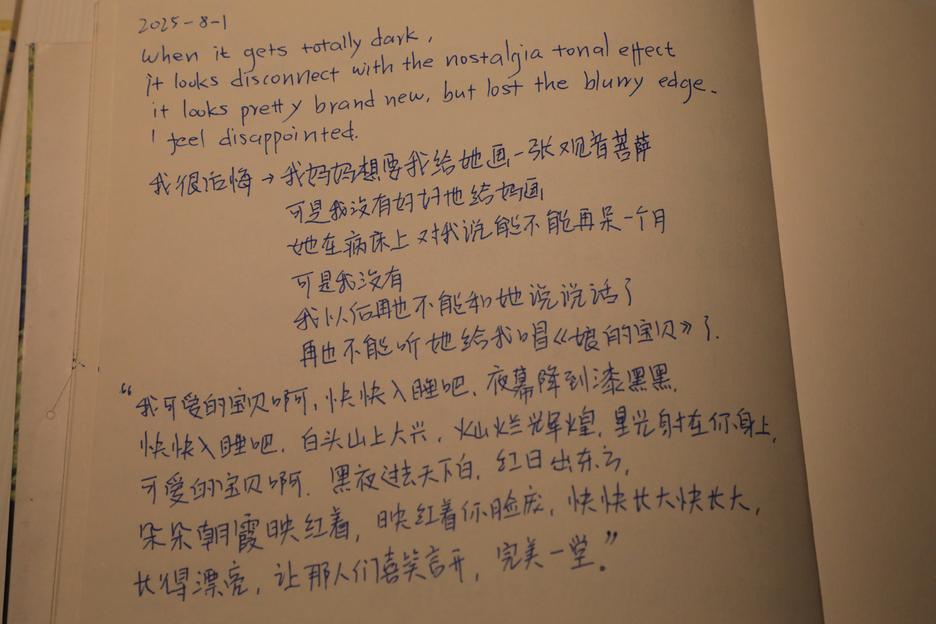 2025-8-1
When it gets totally dark,
it looks disconnect with the nostalgia tonal effect
it looks pretty brand new, but lost the blurry edge.
I feel disappointed.
我很后悔→我妈妈想要我给她画一张观音菩萨
可是我没有好好地给妈画
她在病床上对我说能不能再呆一个月
可是我没有
我以后再也不能和她说说话了
再也不能听她给我唱《娘的宝贝》了.
“我可爱的宝贝啊,快快入睡吧.夜幕降到漆黑黑.
快快入睡吧.白头山上大兴,灿烂辉煌.星光射在你身上,
可爱的宝贝啊.黑夜过去天下白.红日出东方,
朵朵朝霞映红着,映红着你脸庞,快快长大快长大,
长得漂亮,让那人们喜笑言开,完美一堂。”